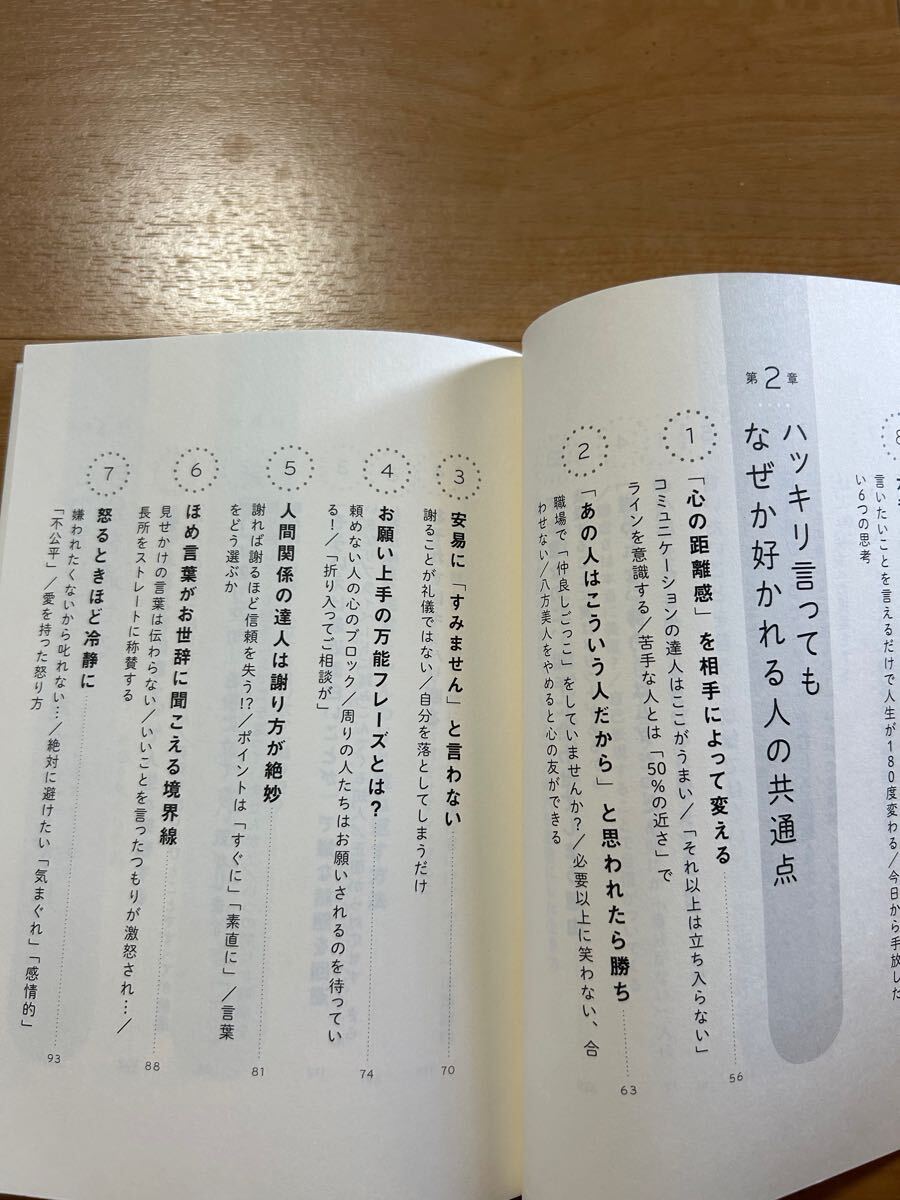 言いたいことを言えるだけで人生が180度変わる／今日から手放した
い6つの思考
第2章
ハッキリ言っても
なぜか好かれる人の共通点
1
「心の距離感」を相手によって変える
56
コミュニケーションの達人はここがうまい／「それ以上は立ち入らない」
ラインを意識する／苦手な人とは「50％の近さ」で
2
「あの人はこういう人だから」と思われたら勝ち
63
職場で「仲良しごっこ」をしていませんか？／必要以上に笑わない、合
わせない／八方美人をやめると心の友ができる
3
安易に「すみません」と言わない
70
謝ることが礼儀ではない／自分を落としてしまうだけ
4
お願い上手の万能フレーズとは？
74
頼めない人の心のブロック／周りの人たちはお願いされるのを待ってい
る！／「折り入ってご相談が」
5
人間関係の達人は謝り方が絶妙
81
謝れば謝るほど信頼を失う!?／ポイントは「すぐに」「素直に」／言葉
をどう選ぶか
6
ほめ言葉がお世辞に聞こえる境界線
88
見せかけの言葉は伝わらない／いいことを言ったつもりが激怒され…／
長所をストレートに称賛する
7
怒るときほど冷静に
93
嫌われたくないから叱れない…／絶対に避けたい「気まぐれ」「感情的」
「不公平」／愛を持った怒り方